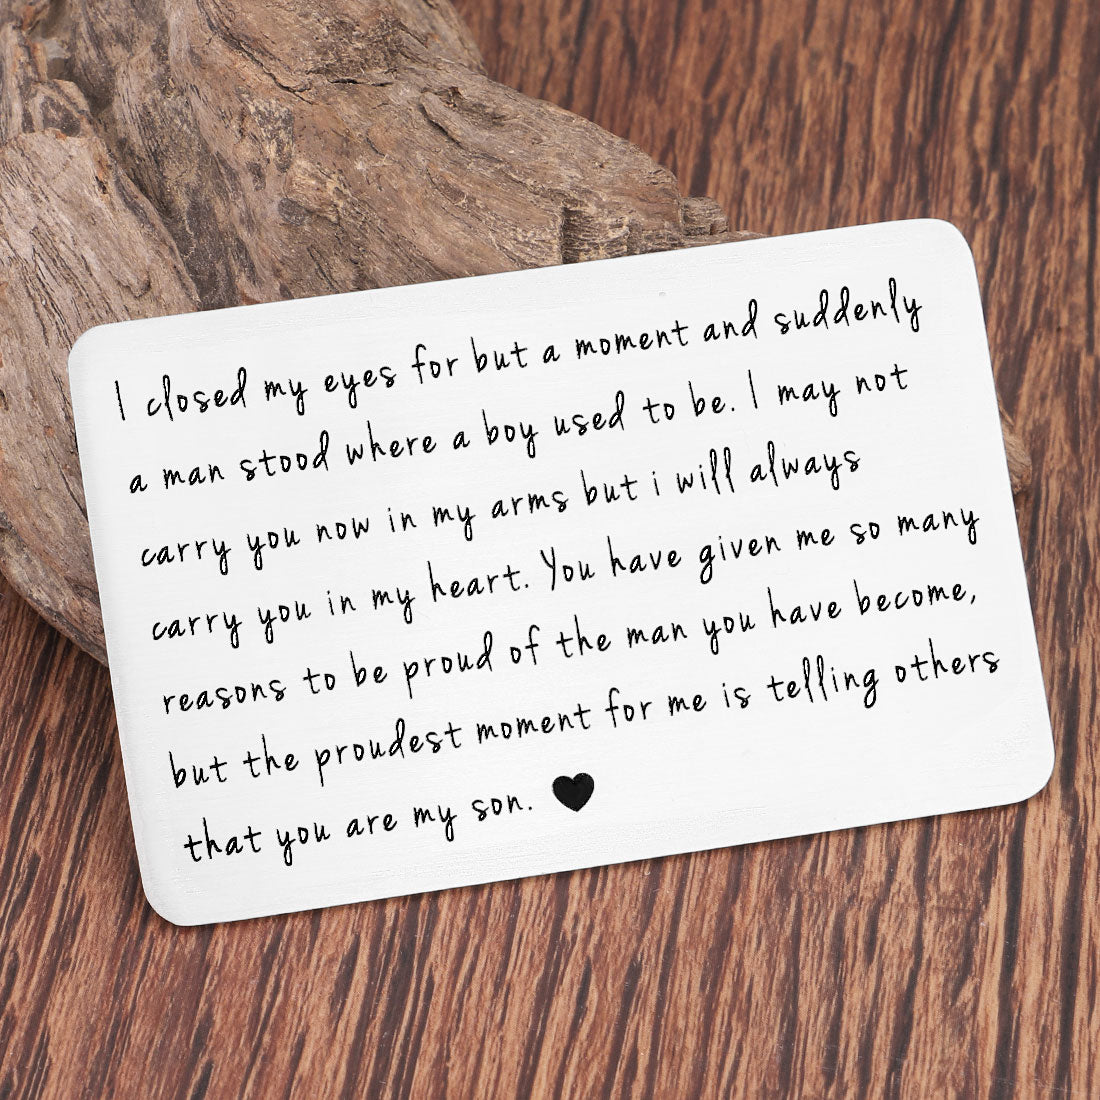 I closed my eyes for but a moment and suddenly
a man stood where a boy used to be. I may not
carry you now in my arms but i will always
carry you in my heart. You have given me so many
reasons to be proud of the man you have become,
but the proudest moment for me is telling others
that you are my son. ♥